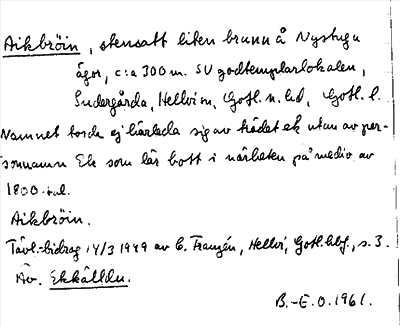 Aikbröin, stensatt liten brunn å Nystugu
ägor, c:a 300 m. SV godtemplarlokalen,
Sudergårda, Hellvi sn, Gotl. n. hd, Gotl. l.
Namnet torde ej härleda sig av trädet ek utan av per-
sonnamn Ek som lär bott i närheten på mediv av
1800-tal.
Aikbröin.
Tävl.-bidrag 14/3 1949 av C. Franzén, Hellvi, Gotl. hbf., s. 3.
Äv. Ekkälldu.
B.-E. O. 1961.